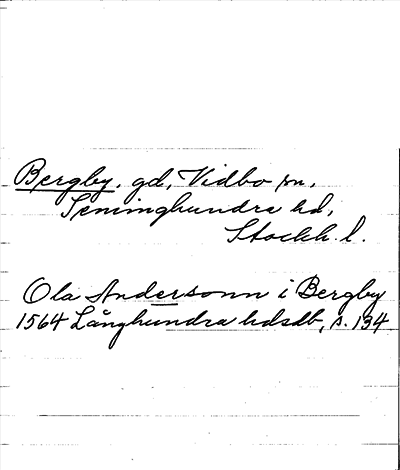 Bergby, gd, Vidbo sn,
Seminghundra hd,
Stockh. l.
Ola Andersonn i Bergby
1564 Långhundra hdsdb, s. 134